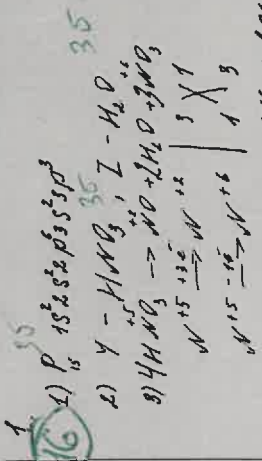 1
1б
1) ₁₅P 1s²2s²2p⁶3s²3p³ 3б
2) Y - HNO₃, Z - H₂O 3б 3б
3) 4HN⁺⁵O₃ → N⁺²O + 2H₂O + 3N⁺⁶O₃
N⁺⁵ +3e⁻ → N⁺² | 3 | 1
N⁺⁵ -1e → N⁺⁶ | 1 | 3